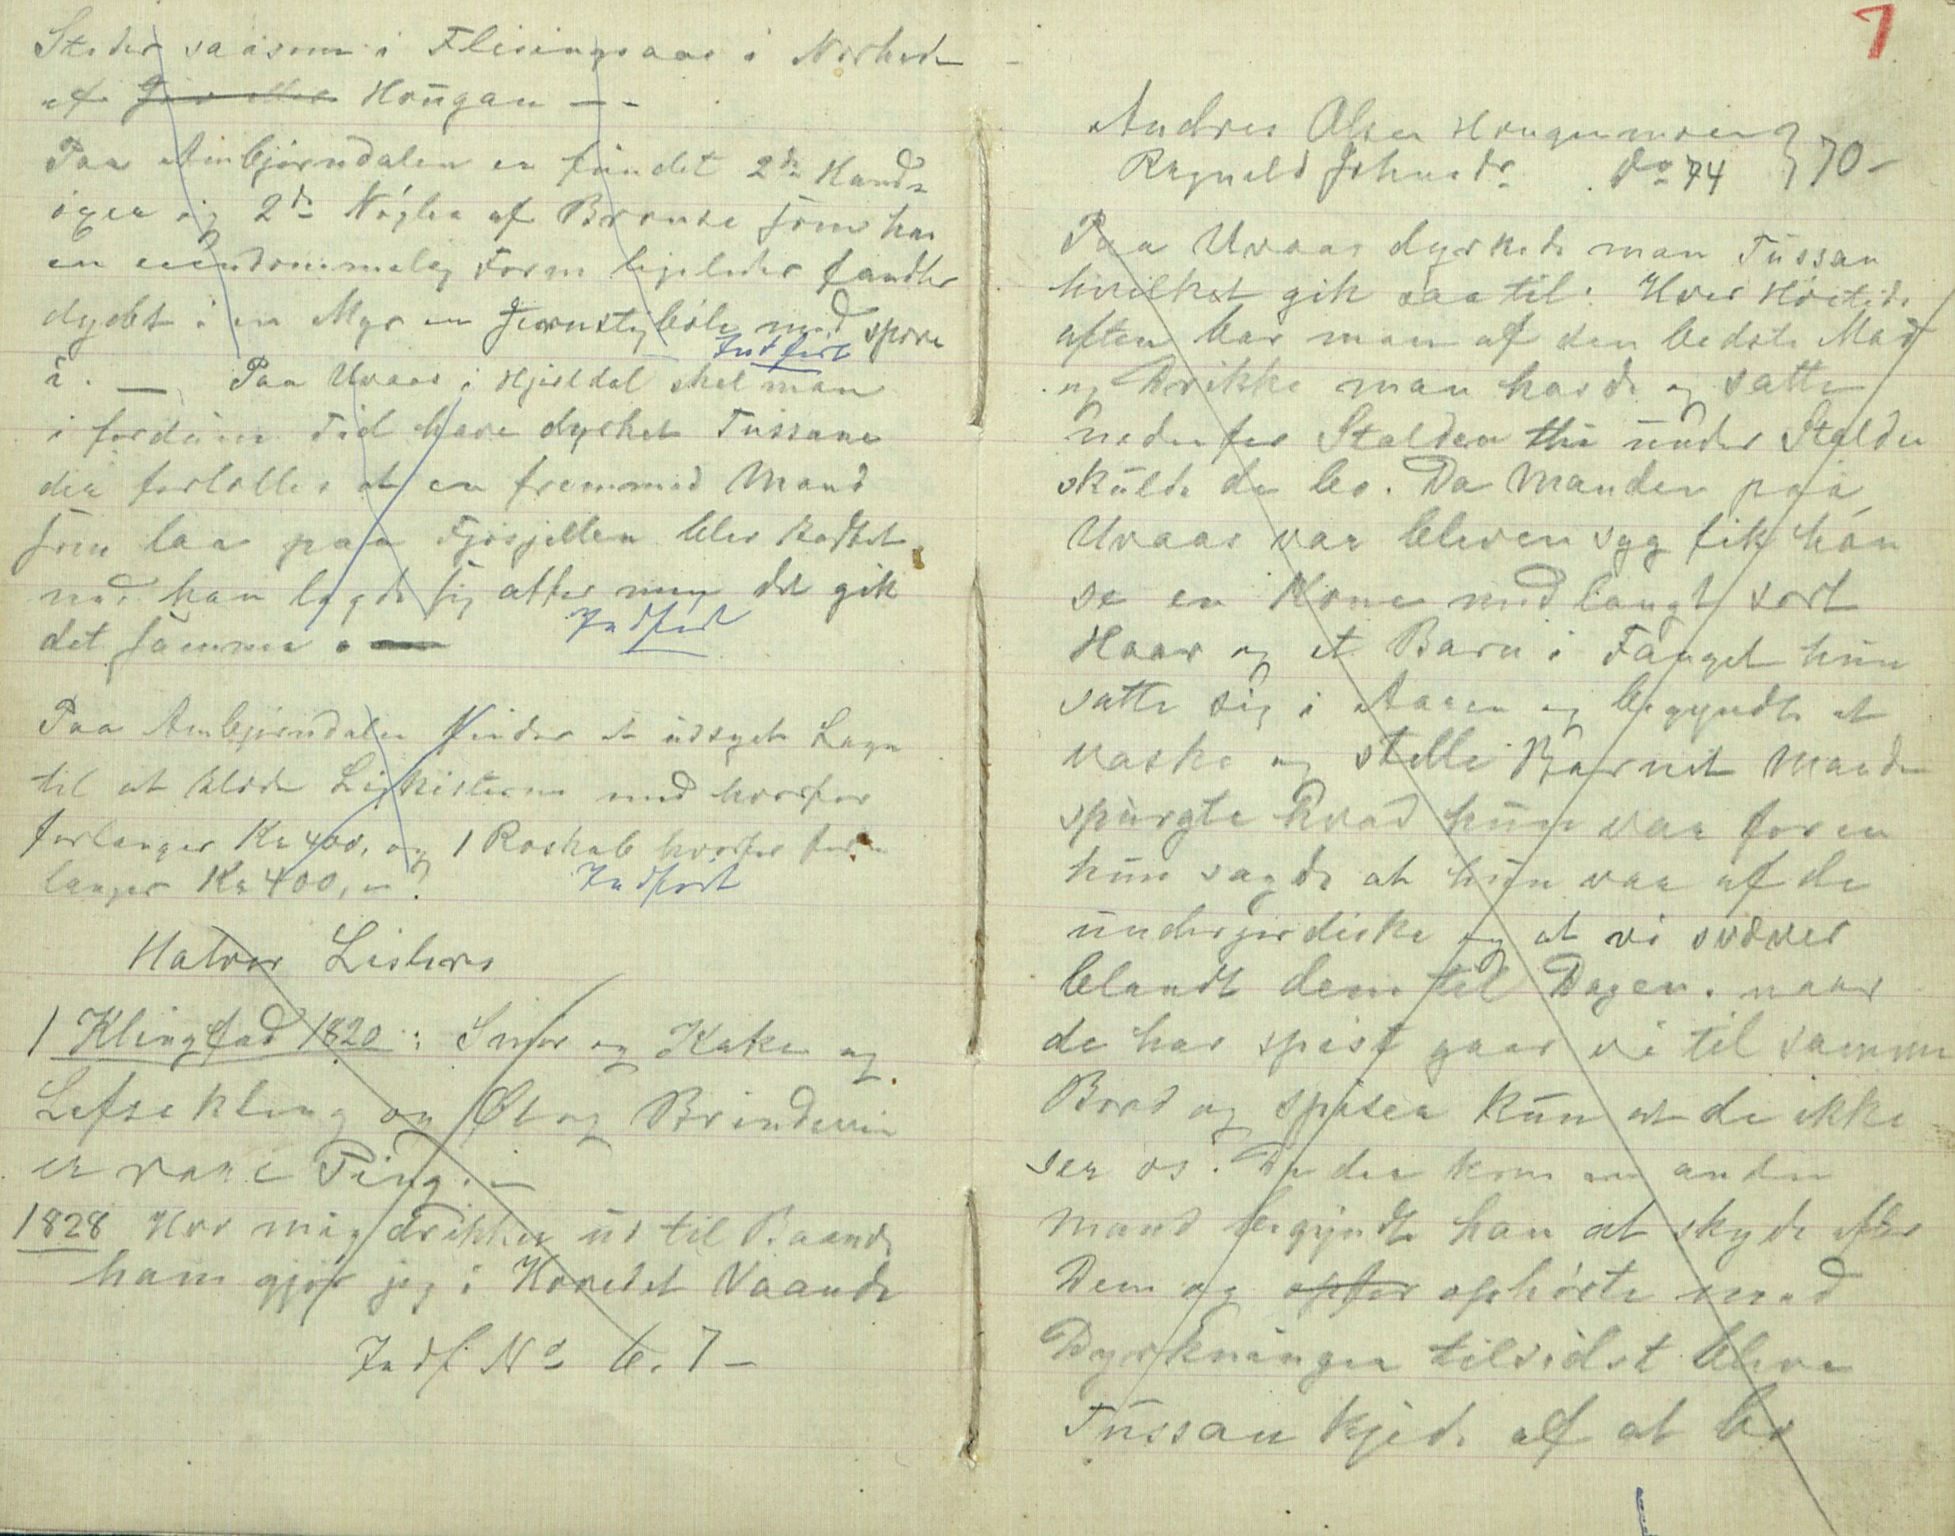 Steder saasom i Flisingsaas i Nærheden
af Hougan — -
Paa Ambjørndalen er fundet 2de Hand-
øxer og 2de Nøgler af Bronse som har
en eiendommelig Form ligeledes fandtes
dybt i en Myr en Jernstigbøile med spore
i. — Paa Uvaas i Hjertdal skal man
Indført
i fordum Tid have dyrket Tussane
der fortælles at en fremmed Mand
som laa paa Fjøsjellen blev kastet
ned han lagde sig atter men det gik
det samme. —
Indført
Paa Ambjørndalen findes et udsyet Lagn
til at klæde Ligkisterne med hvorfor
forlanges Kr 400, og 1 Roskab hvorfor for-
langes Kr 400, -?
Indført
Halvor Lislevs
1 Klingfad 1820: Smør og Kake og
Lefsekling og Øl og Brindeviin
er vare Ting. —
1828 Hvo mig drikker ud til Baands
ham gjør jeg i Hovedet Vaande
Indf No 6. 7 —
7
Andres Olsen Hougenmoen
Ragnild Johnsdr. do 74 } 70 -
Paa Uvaas dyrkede man Tussan
hvilket gik saa til: Hver Høitids
aften bar man af den bedste Mad
og Drikke man havde og satte
nedenfor Stalden thi under Stalden
skulde de bo. Da Manden paa
Uvaas var bleven syg fik han
se en Kone med langt sort
Haar og et Barn i Fanget hun
satte sig i Aaren og begyndte at
vaske og stelle Barnet Manden
spurgte hvad hun var for en
hun sagde at hun var af de
underjordiske og at vi svæver
blandt dem til Dagen. naar
de har spist gaar vi til samme
Bord og spiser kun at de ikke
ser os. Da der kom en anden
Mand begyndte han at skyde efter
Dem og opfor ophørte med
Dyrkningen tilsidst bleve
Tussan kjed af at bo